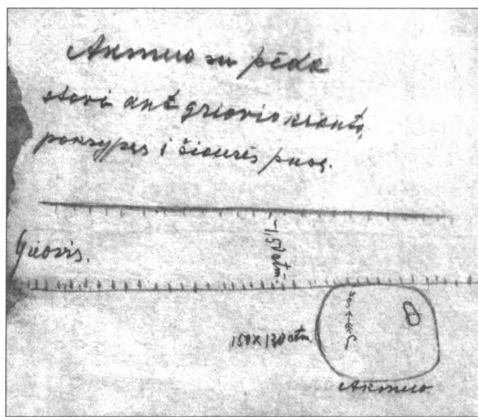 Akmuo su pėda
stovi ant griovio kranto,
pakrypęs į šiaurės pusę.
Griovis.
150x130 ctm.
Akmuo